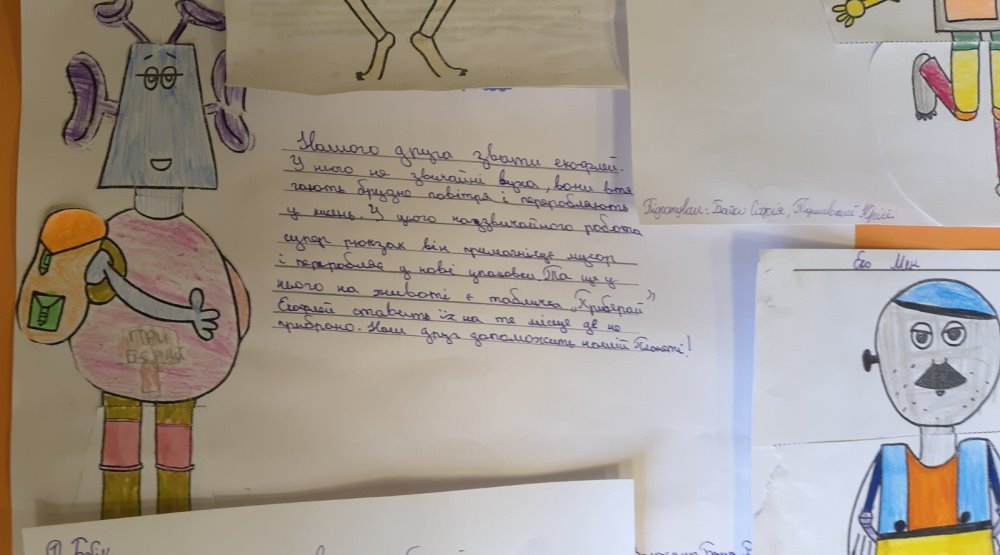 Нашого друга звати екофлей.
У нього не звичайні вуха, вони втя
гають брудно повітря і переробляють
у кисень. У цього надзвичайного робота
супер рюкзак він примагнічує мусор
і переробляє у нові упаковки. Та ще у
нього на животі є табличка „Прибирай”
Екофлей ставить їх на те місце де не
прибрано. Наш друг допоможить нашій Планеті!
ПРИ
БИРАЙ
Підготували: Бойко Софія, Юрій
Еко Мен